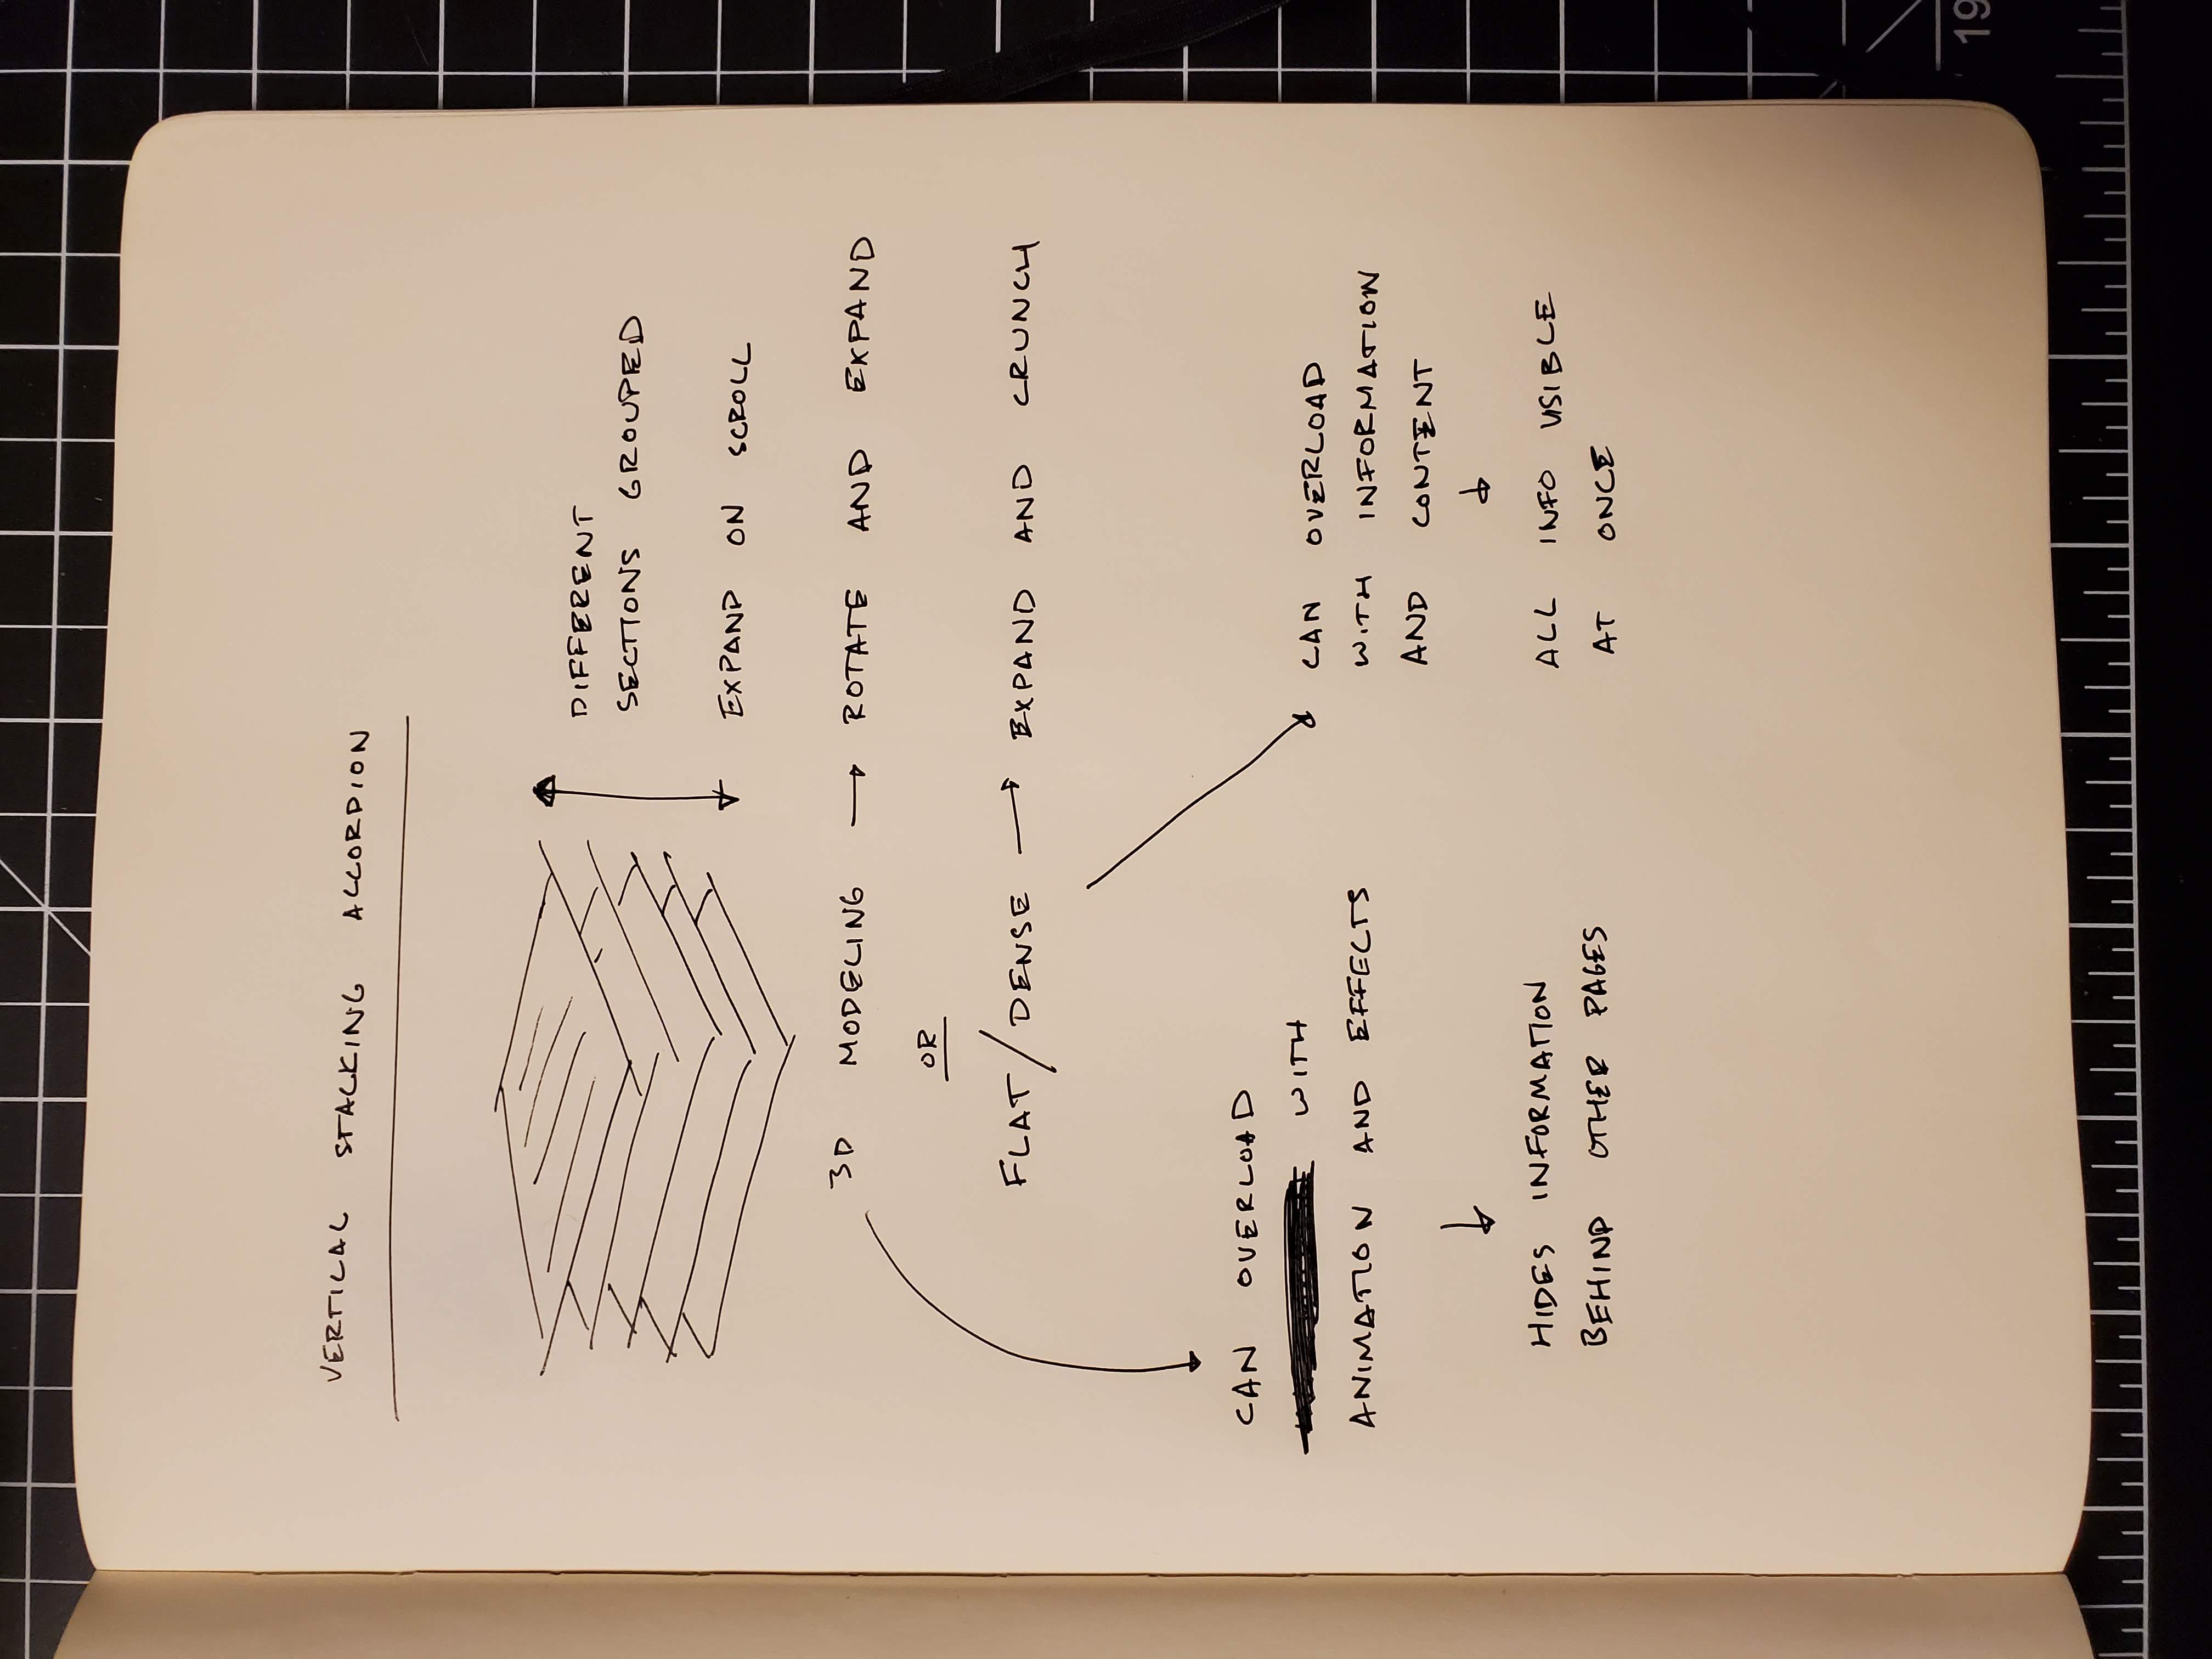 VERTICAL STACKING ACCORDION
DIFFERENT
SECTIONS GROUPED
EXPAND ON SCROLL
3D MODELING → ROTATE AND EXPAND
OR
FLAT / DENSE → EXPAND AND CRUNCH
CAN OVERLOAD
WITH
ANIMATION AND EFFECTS
↓
HIDES INFORMATION
BEHIND OTHER PAGES
CAN OVERLOAD
WITH INFORMATION
AND CONTENT
↓
ALL INFO VISIBLE
AT ONCE
19